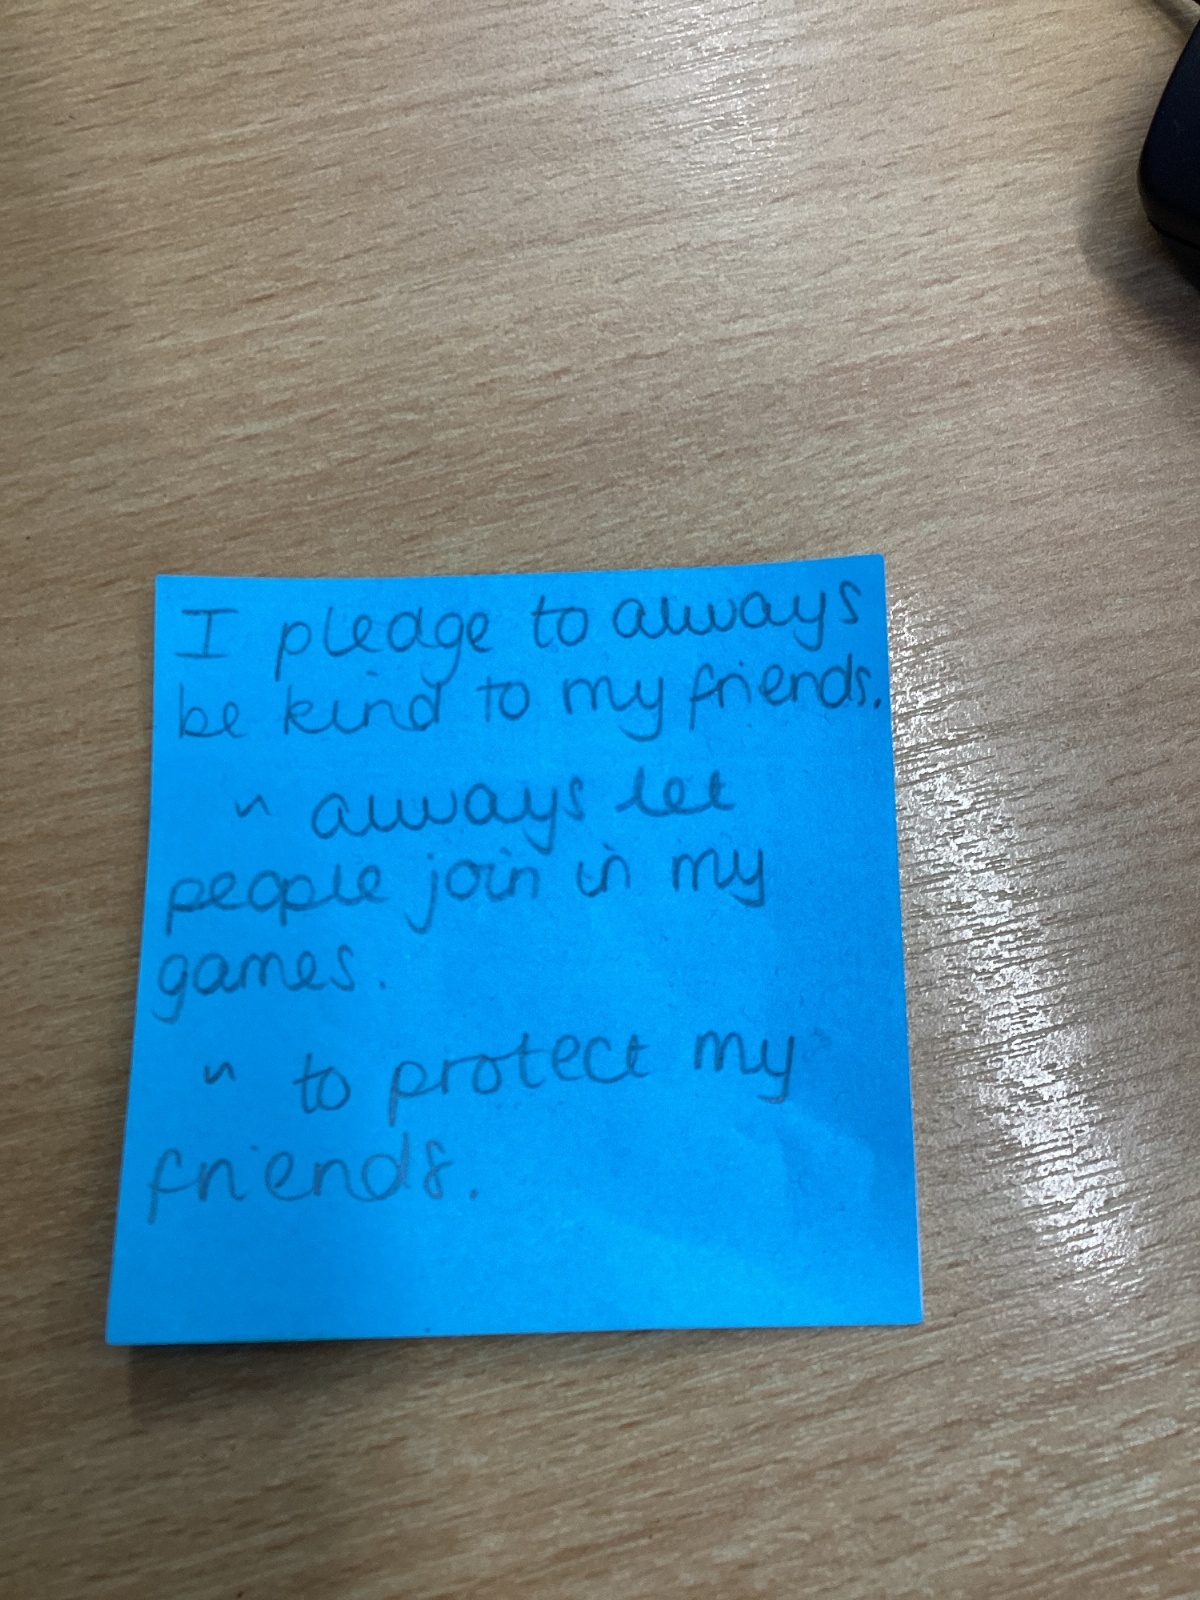 I pledge to always
be kind to my friends.
" always let
people join in my
games.
" to protect my
friends.